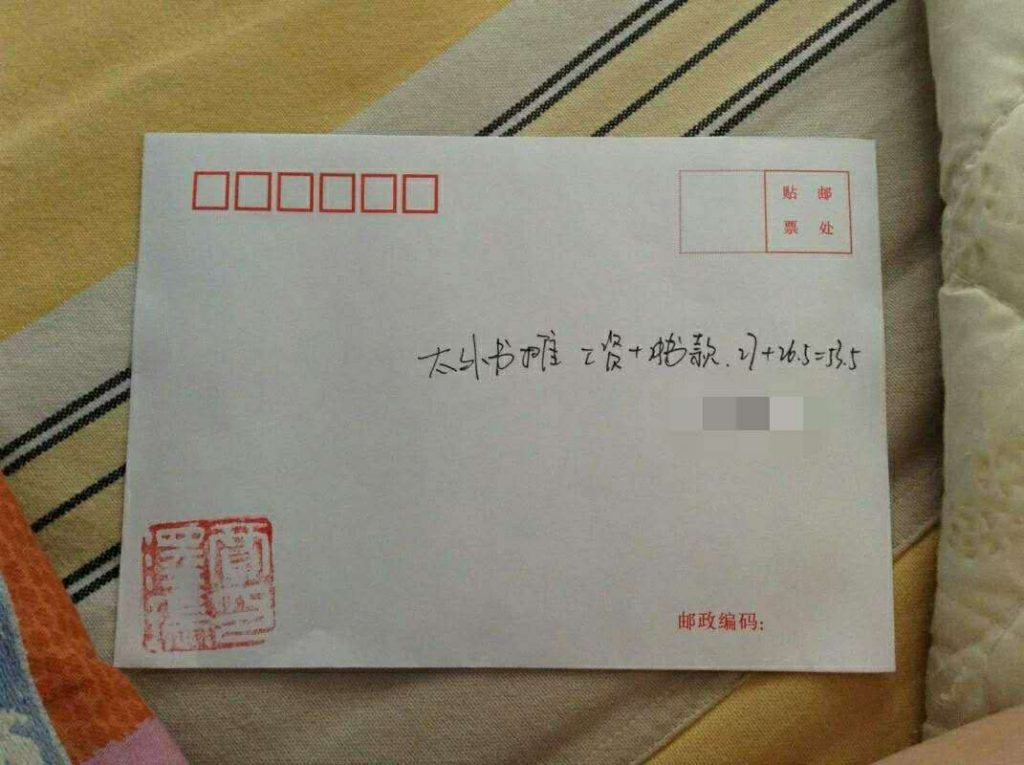 贴 邮
票 处
太外书摊 工资+书款.27+26.5=53.5
邮政编码: